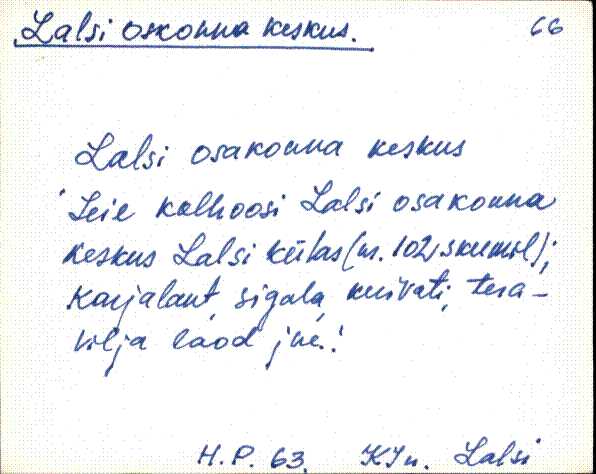 Lalsi oskonna keskus. 66
Lalsi osakonna keskus
'Leie kolhoosi Lalsi osakonna
keskus Lalsi külas (nr. 102 skeemil);
karjalaut, sigala, kuivati, tera-
vilja laod jne.'
H.P. 63. KJn. Lalsi